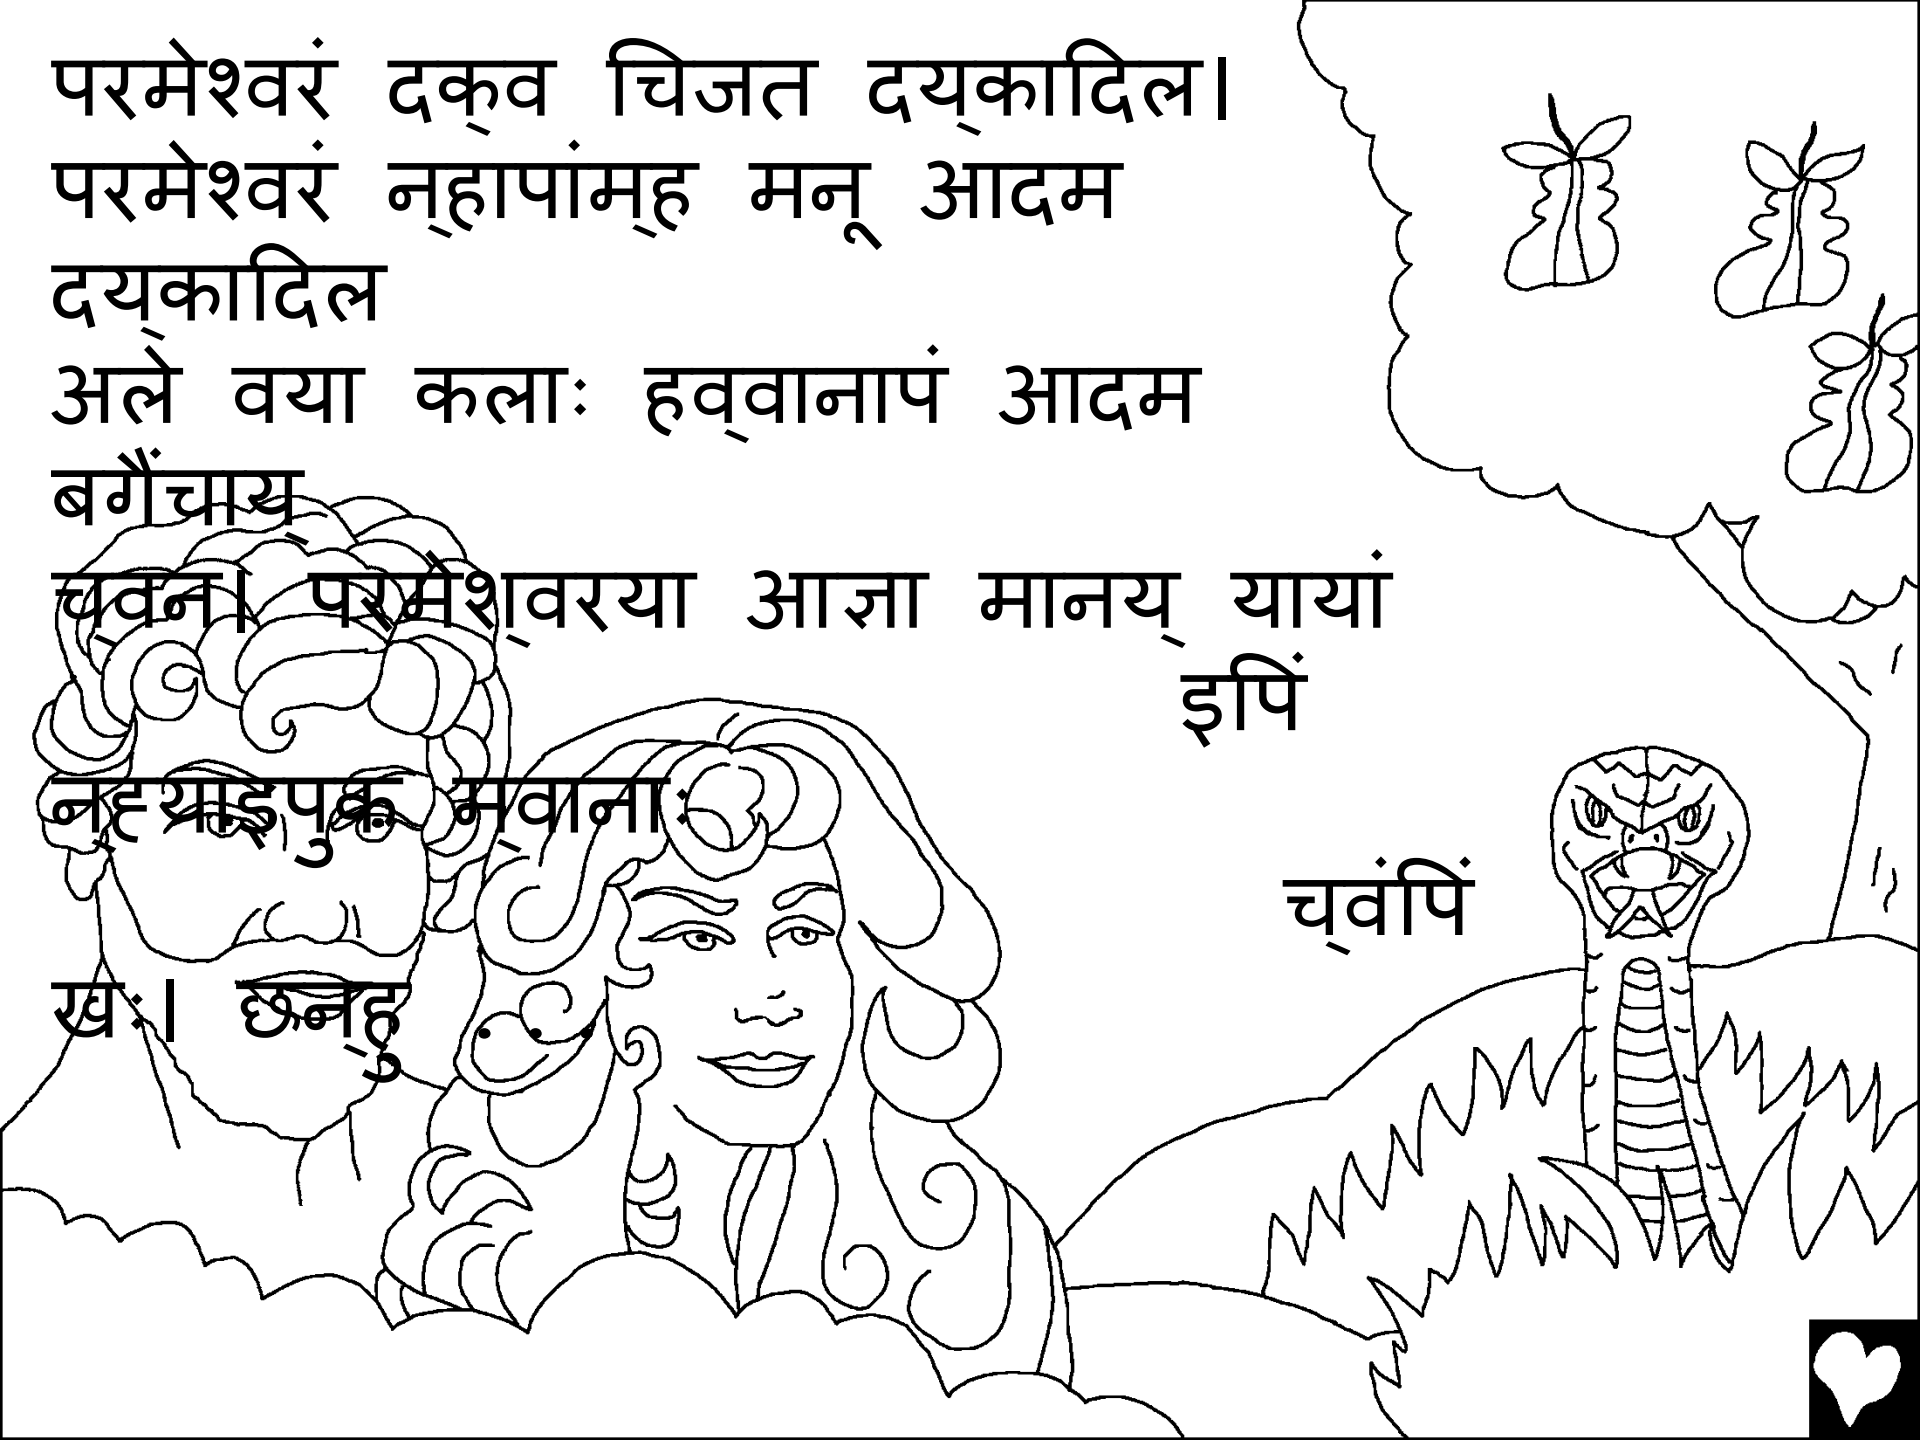 परमेश्वरं दक्‌व चिजत दय्‌कादिल।
परमेश्वरं न्‌हापांम्‌ह मनू आदम
दय्‌कादिल
अले वया कलाः हव्‌वानापं आदम
बगैंचाय्
च्‌वन। परमेश्‌वरया आज्ञा मानय् यायां
इपिं
न्‌ह्याइपुक म्‌वानाः
च्‌वंपिं
खः। छन्‌हु